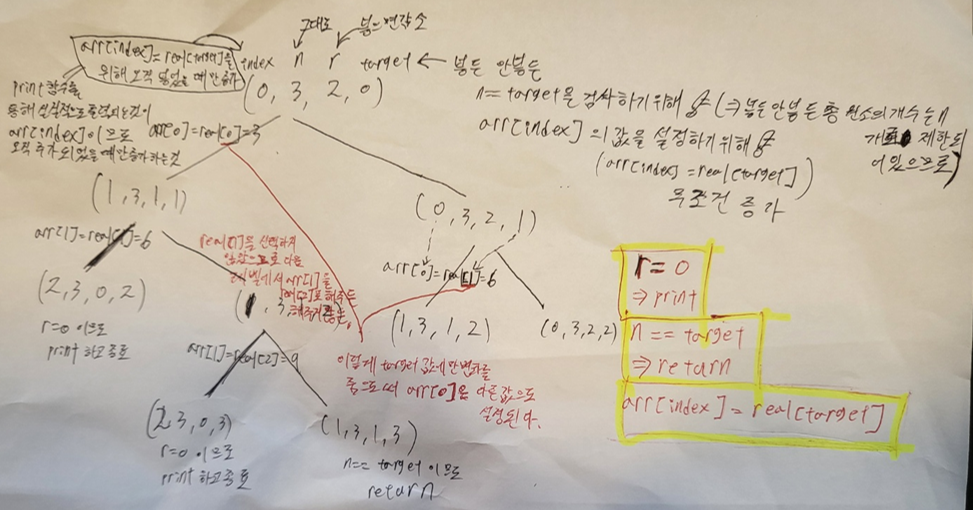 arr[index] = real[target]을
위해 오직 뽑았을 때만 증가
그대로
뽑으면 감소
index n r target ← 뽑든 안뽑든
(0, 3, 2, 0)
print 함수를
통해 실질적으로 출력되는것이
arr[index] 이므로
오직 추가 되었을 때만 증가하는것
arr[0]=real[0]=3
n == target을 검사하기위해
(⇒ 뽑든 안뽑든 총 원소의 개수는 n
개로 제한되
어 있으므로)
arr[index] 의 값을 설정하기위해
(arr[index] = real[target])
무조건 증가
(1, 3, 1, 1)
(0, 3, 2, 1)
arr[1]=real[1]=6
real[1]을 선택하지
않았으므로 다음
arr[1]을
real[2]로 해주든
arr[0]=real[1]=6
(2, 3, 0, 2)
r=0 이므로
print 하고 종료
(1, 3,
(1, 3, 1, 2)
(0, 3, 2, 2)
arr[1]=real[2]=9
이렇게 target 값에만 변화를
줌으로써 arr[0]은 다른값으로
설정된다.
(2, 3, 0, 3)
r=0 이므로
print 하고종료
(1, 3, 1, 3)
n== target 이므로
return
r = 0
⇒ print
n == target
⇒ return
arr[index] = real[target]